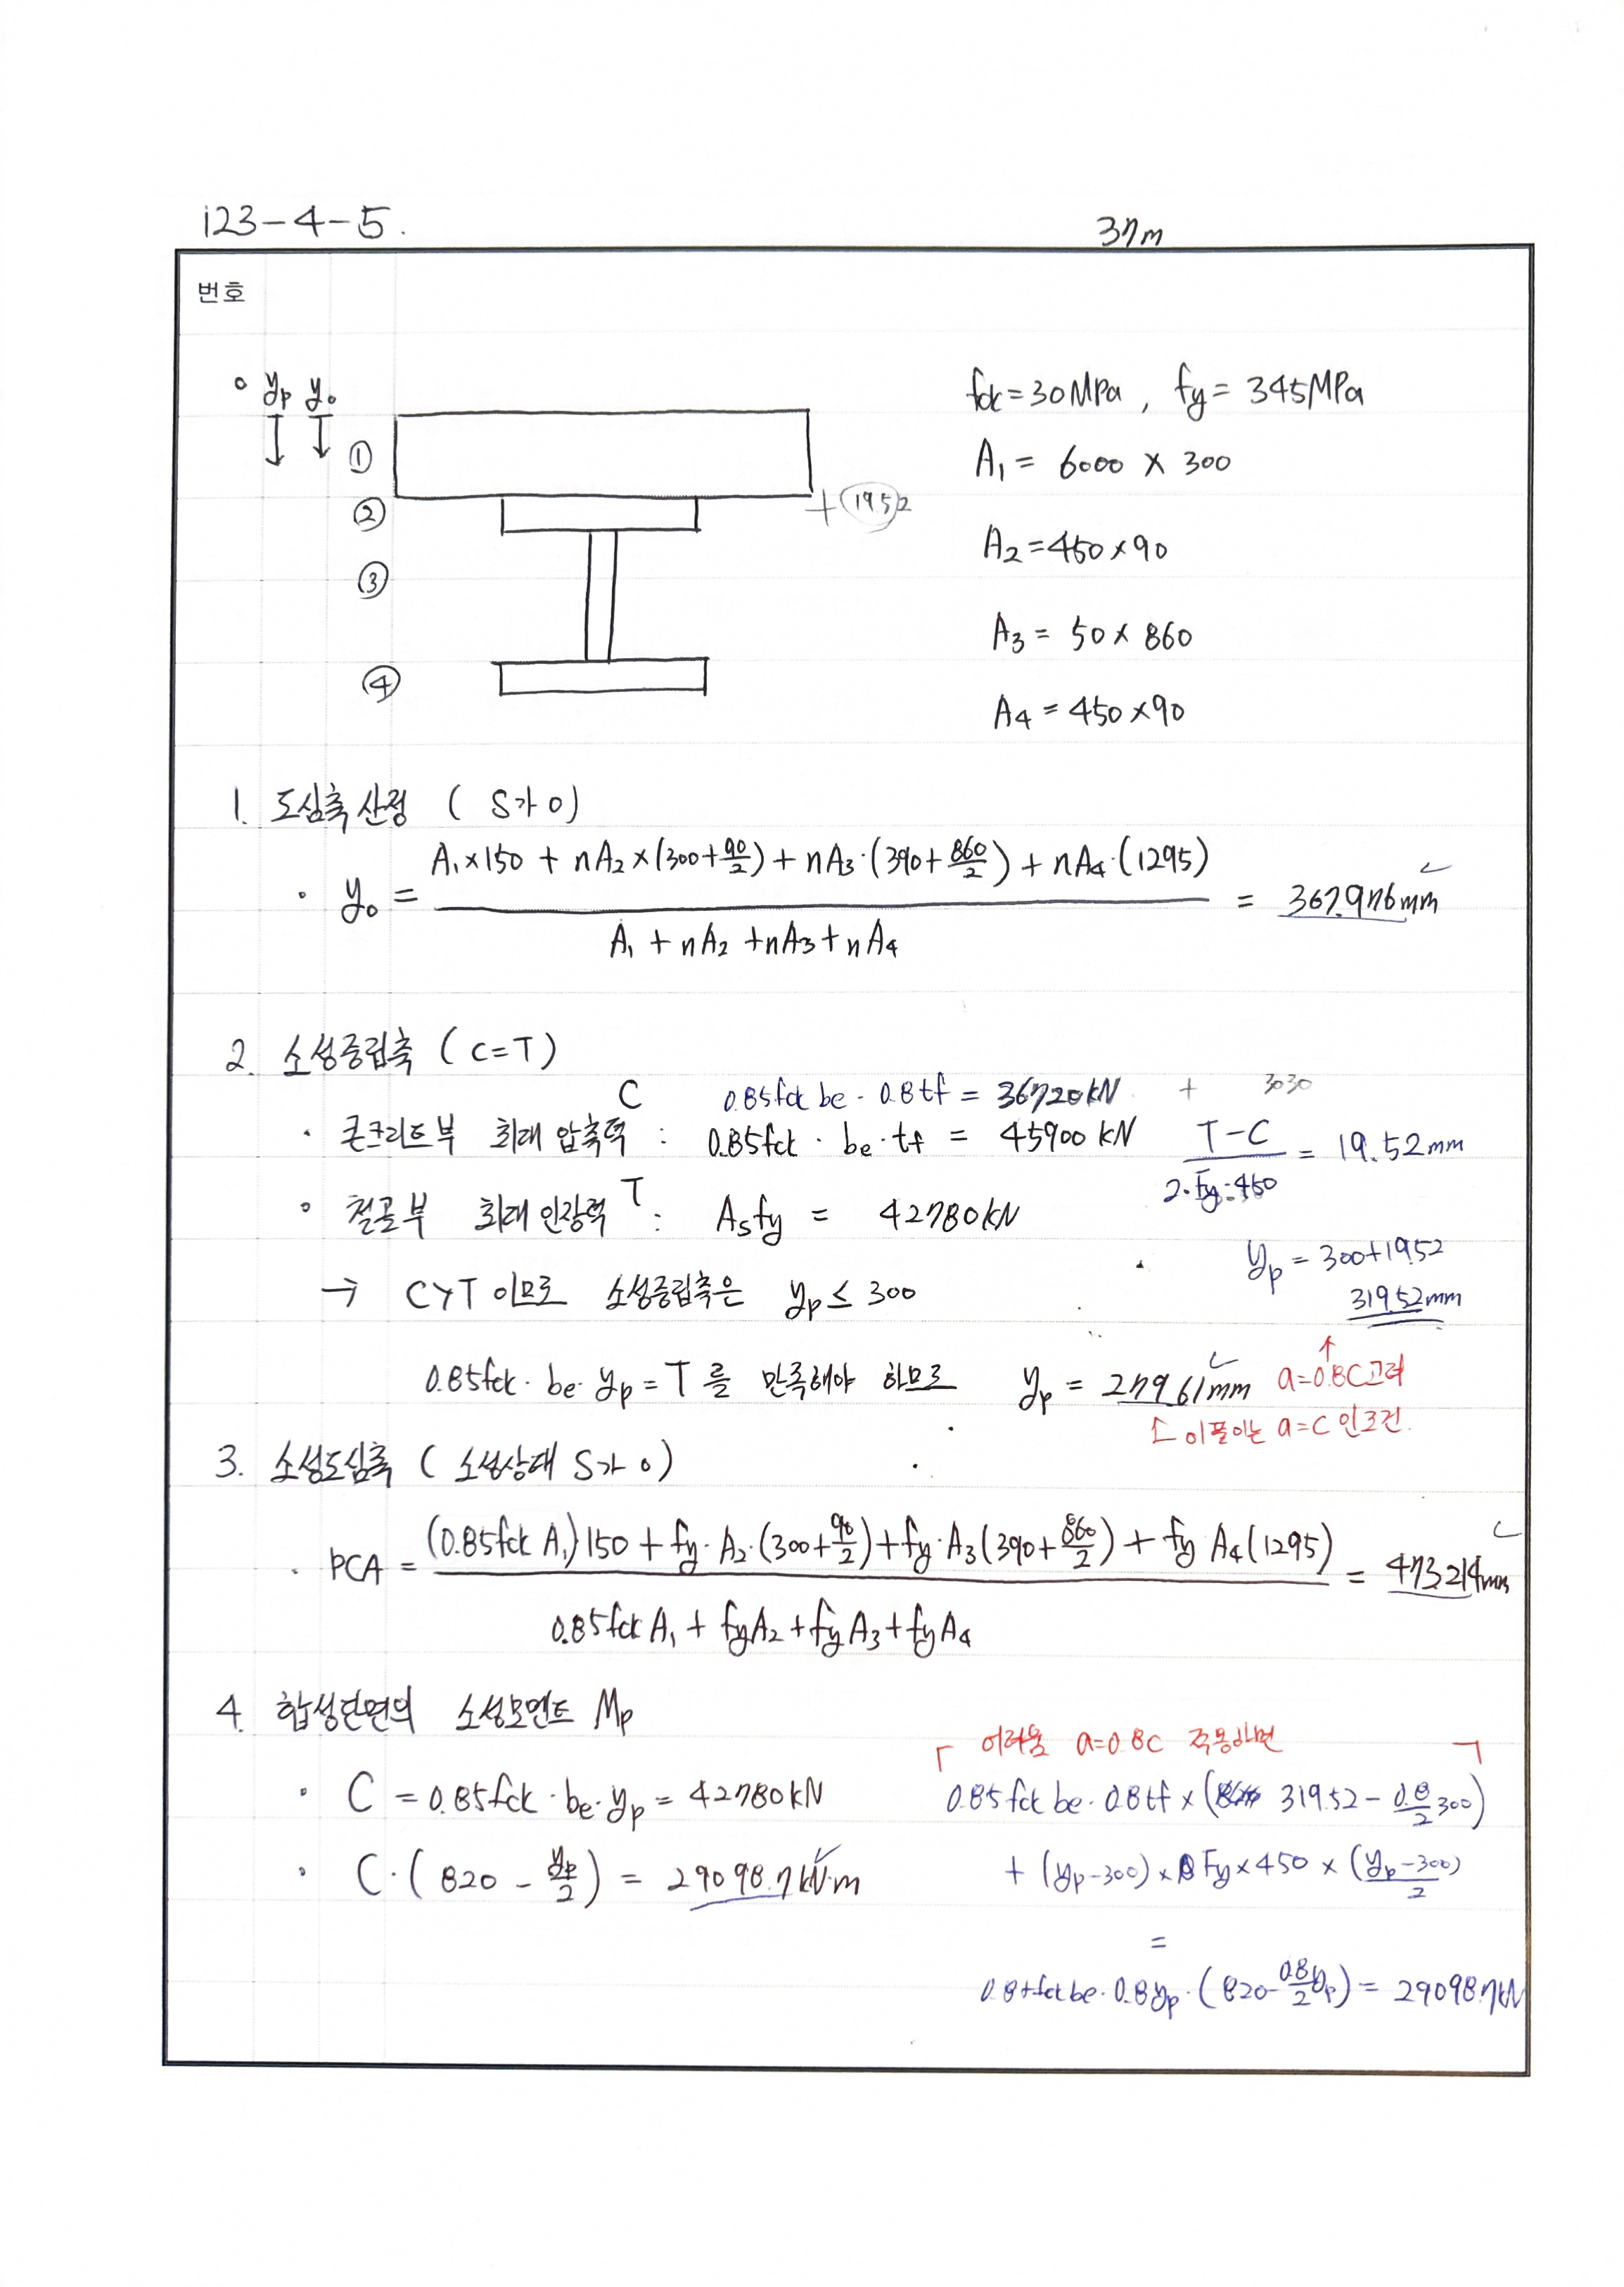 123-4-5.
37m
번호
° yp yo
①
②
③
④
+ 19.52
fck = 30MPa , fy = 345MPa
A1 = 6000 × 300
A2 = 450×90
A3 = 50 × 860
A4 = 450×90
1. 도심축산정 ( S가 0)
· yo = (A1×150 + nA2×(300+90/2) + nA3·(390+860/2) + nA4·(1295)) / (A1 + nA2 + nA3 + nA4) = 367.976mm
2. 소성중립축 (C=T)
C 0.85fck be · 0.8tf = 36720kN + 3030
· 콘크리트부 최대 압축력 : 0.85fck · be·tf = 45900 kN
(T-C) / (2·Fy·450) = 19.52mm
· 철골부 최대 인장력 T : Asfy = 42780kN
yp = 300+19.52
319.52mm
→ C>T 이므로 소성중립축은 yp ≤ 300
0.85fck · be· yp = T 를 만족해야 하므로 yp = 279.61mm
↑ a=0.8C고려
이풀이는 a=C 인조건.
3. 소성도심축 ( 소성상태 S가 0)
· PCA = ((0.85fck A1)150 + fy·A2·(300+90/2)+fy·A3(390+860/2) + fy A4(1295)) / (0.85fck A1 + fyA2 + fyA3 + fyA4) = 473.214mm
4. 합성단면의 소성모멘트 Mp
어려움 a=0.8C 적용하면
· C = 0.85fck · be· yp = 42780kN
0.85fck be · 0.8tf × ( 319.52 - 0.8/2 300)
· C·( 820 - yp/2 ) = 29098.7kN·m
+ (yp-300) × Fy×450 × (yp-300)/2
=
0.8+fck be · 0.8yp · (820-0.8/2 yp) = 29098.7kN